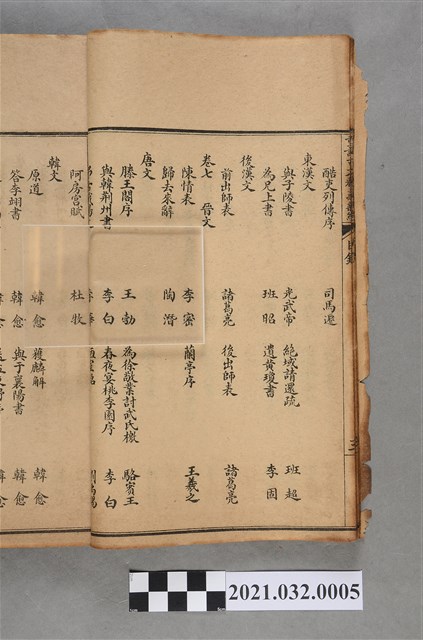 酷吏列傳序 司馬遷
東漢文
與子陵書 光武帝 絕域請還疏 班超
為兄上書 班昭 遺黃瓊書 李固
後漢文
前出師表 諸葛亮 後出師表 諸葛亮
卷七 晉文
陳情表 李密 蘭亭序 王羲之
歸去來辭 陶潛
唐文
滕王閣序 王勃 為徐敬業討武氏檄 駱賓王
與韓荊州書 李白 春夜宴桃李園序 李白
阿房宮賦 杜牧
韓文
原道 韓愈 獲麟解 韓愈
答李翊書 韓愈 與于襄陽書 韓愈
目錄
三
2021.032.0005